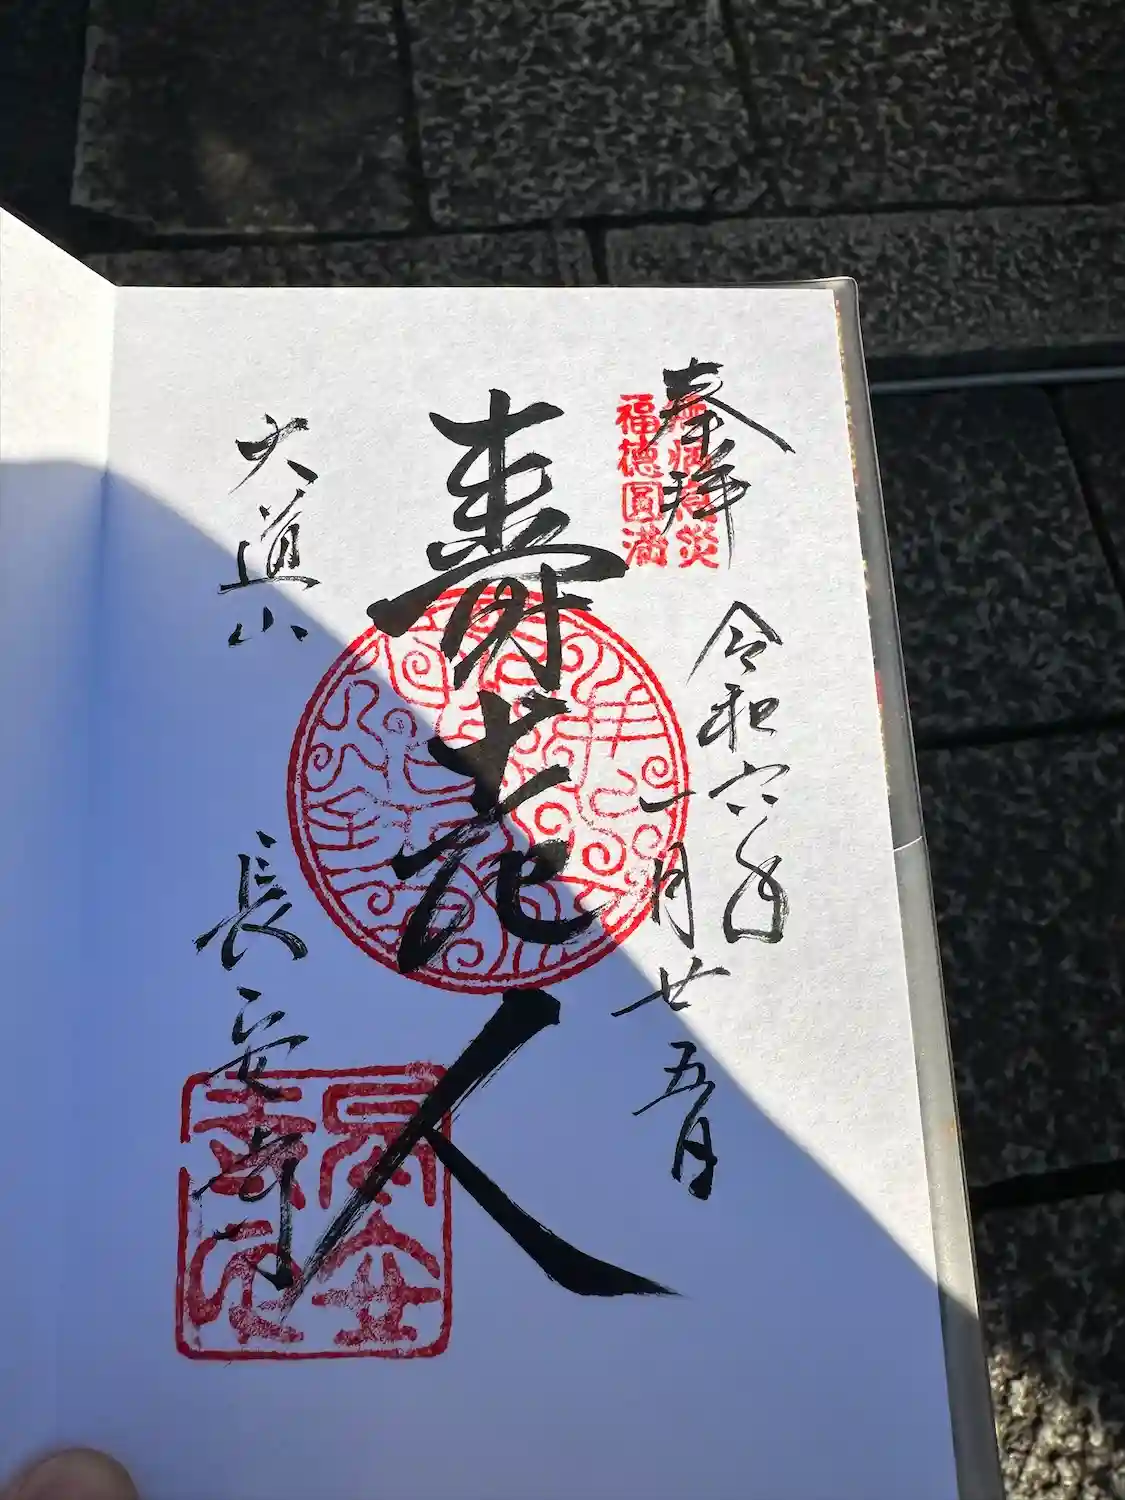 奉拝
無病息災
福徳圓満
令和六年
一月廿五日
壽老人
大道山
長安寺
長安
寺印